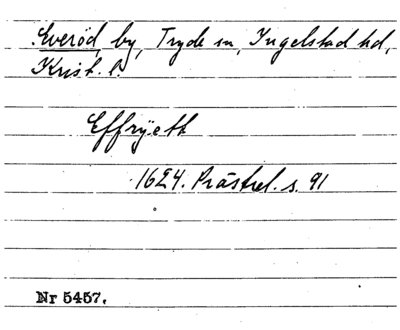 Everöd, by, Tryde sn, Ingelstad hd,
Krist. l.
Effryetk
1624. Prästrel. s. 91
Nr 5457.